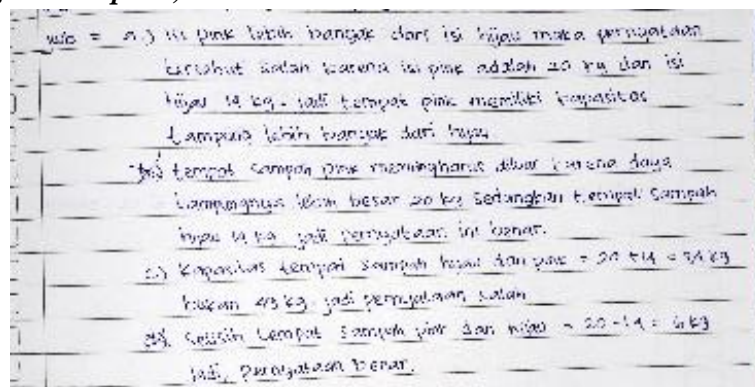 a.) isi pink lebih banyak dari isi hijau maka pernyataan
tersebut salah karena isi pink adalah 20 kg dan isi
hijau 14 kg. jadi tempat pink memiliki kapasitas
tampung lebih banyak dari hijau
b) tempat sampah pink diluar karena daya
tampungnya lebih besar 20 kg sedangkan tempat sampah
hijau 14 kg jadi pernyataan ini benar.
c.) Kapasitas tempat sampah hijau dan pink = 20 + 14 = 34 kg
bukan 43 kg. jadi pernyataan salah
d) selisih tempat sampah pink dan hijau = 20 - 14 = 6 kg
jadi, pernyataan benar.